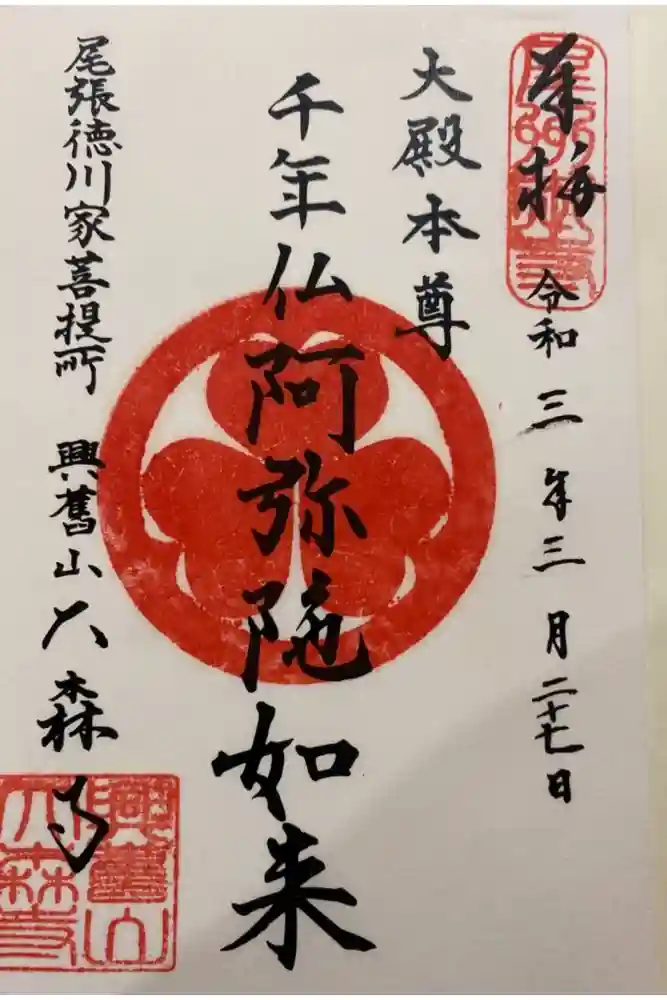 奉拝
令和三年三月二十七日
大殿本尊
千年仏阿弥陀如来
尾張徳川家菩提所 興舊山大森寺
興舊山
大森寺